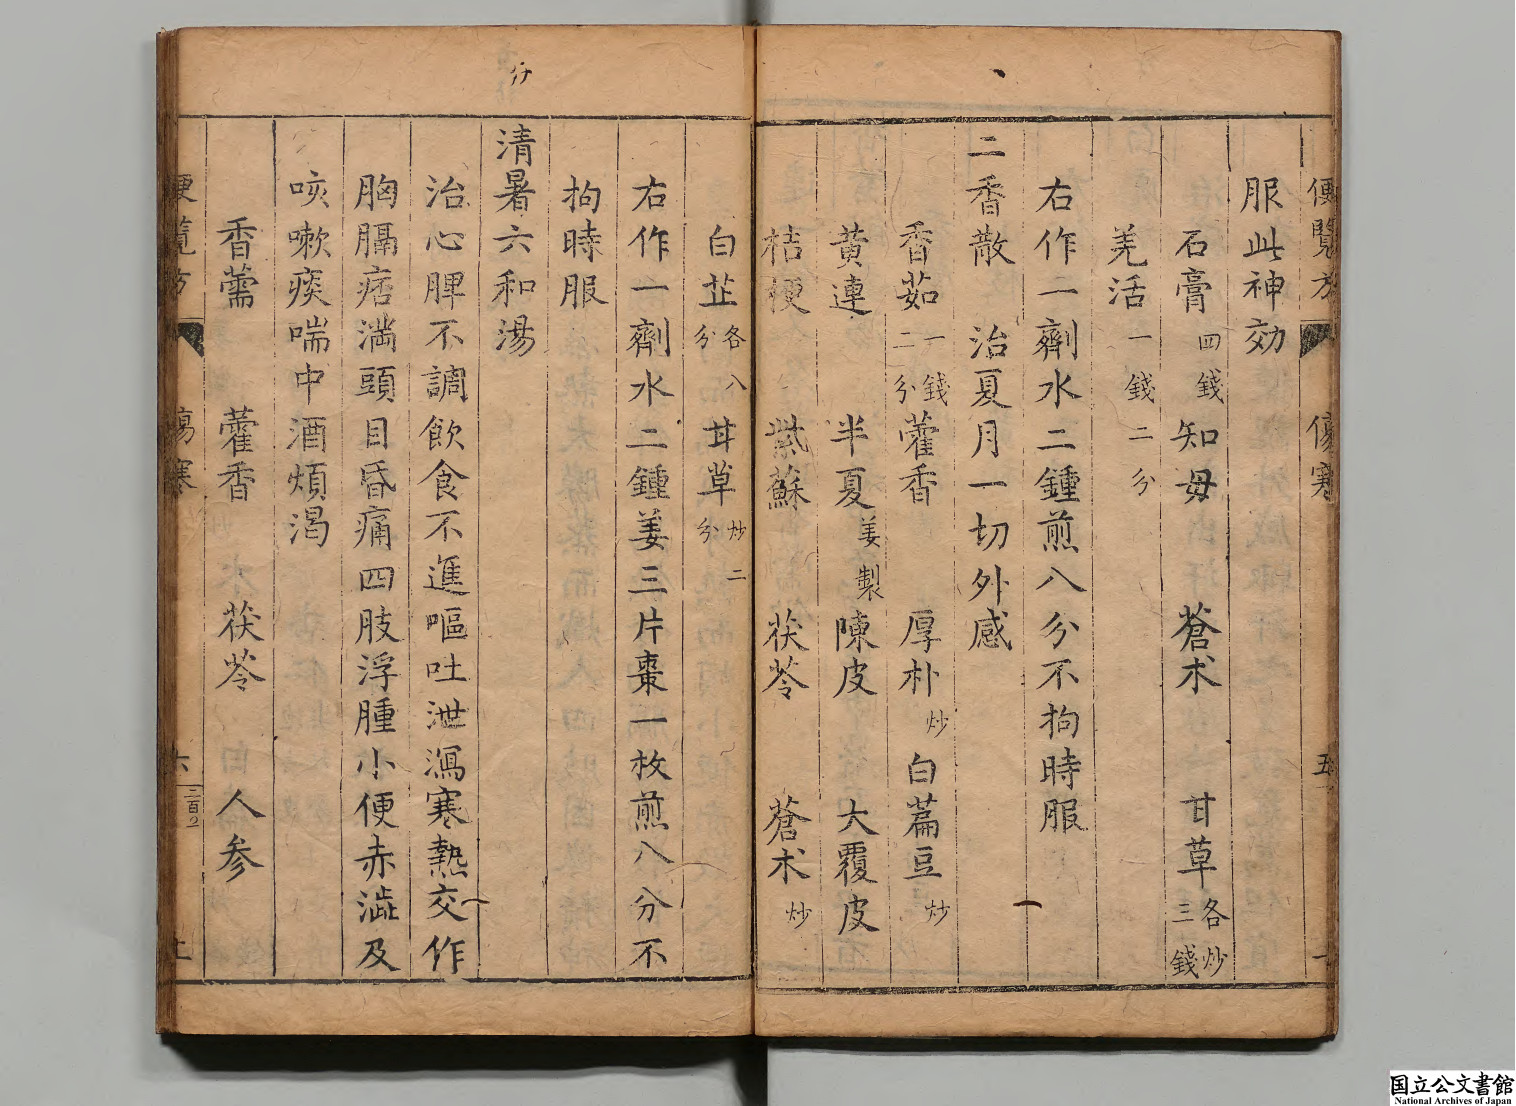 便覽方 傷寒 五
服此神効
石膏四錢 知母 蒼术 甘草各炒三錢
羌活一錢二分
右作二劑水二鍾煎八分不拘時服
二香散 治夏月一切外感
香茹一錢二分 藿香 厚朴炒 白萹豆炒
黃連 半夏姜製 陳皮 大覆皮
桔梗 紫蘇 茯苓 蒼术炒
白芷各八分 甘草炒二分
右作一劑水二鍾姜三片棗一枚煎八分不
拘時服
清暑六和湯
治心脾不調飲食不進嘔吐泄瀉寒熱交作
胸膈痞滿頭目昏痛四肢浮腫小便赤澁及
咳嗽痰喘中酒煩渴
香薷 藿香 茯苓 人參
便覽方 傷寒 六 上
国立公文書館
National Archives of Japan